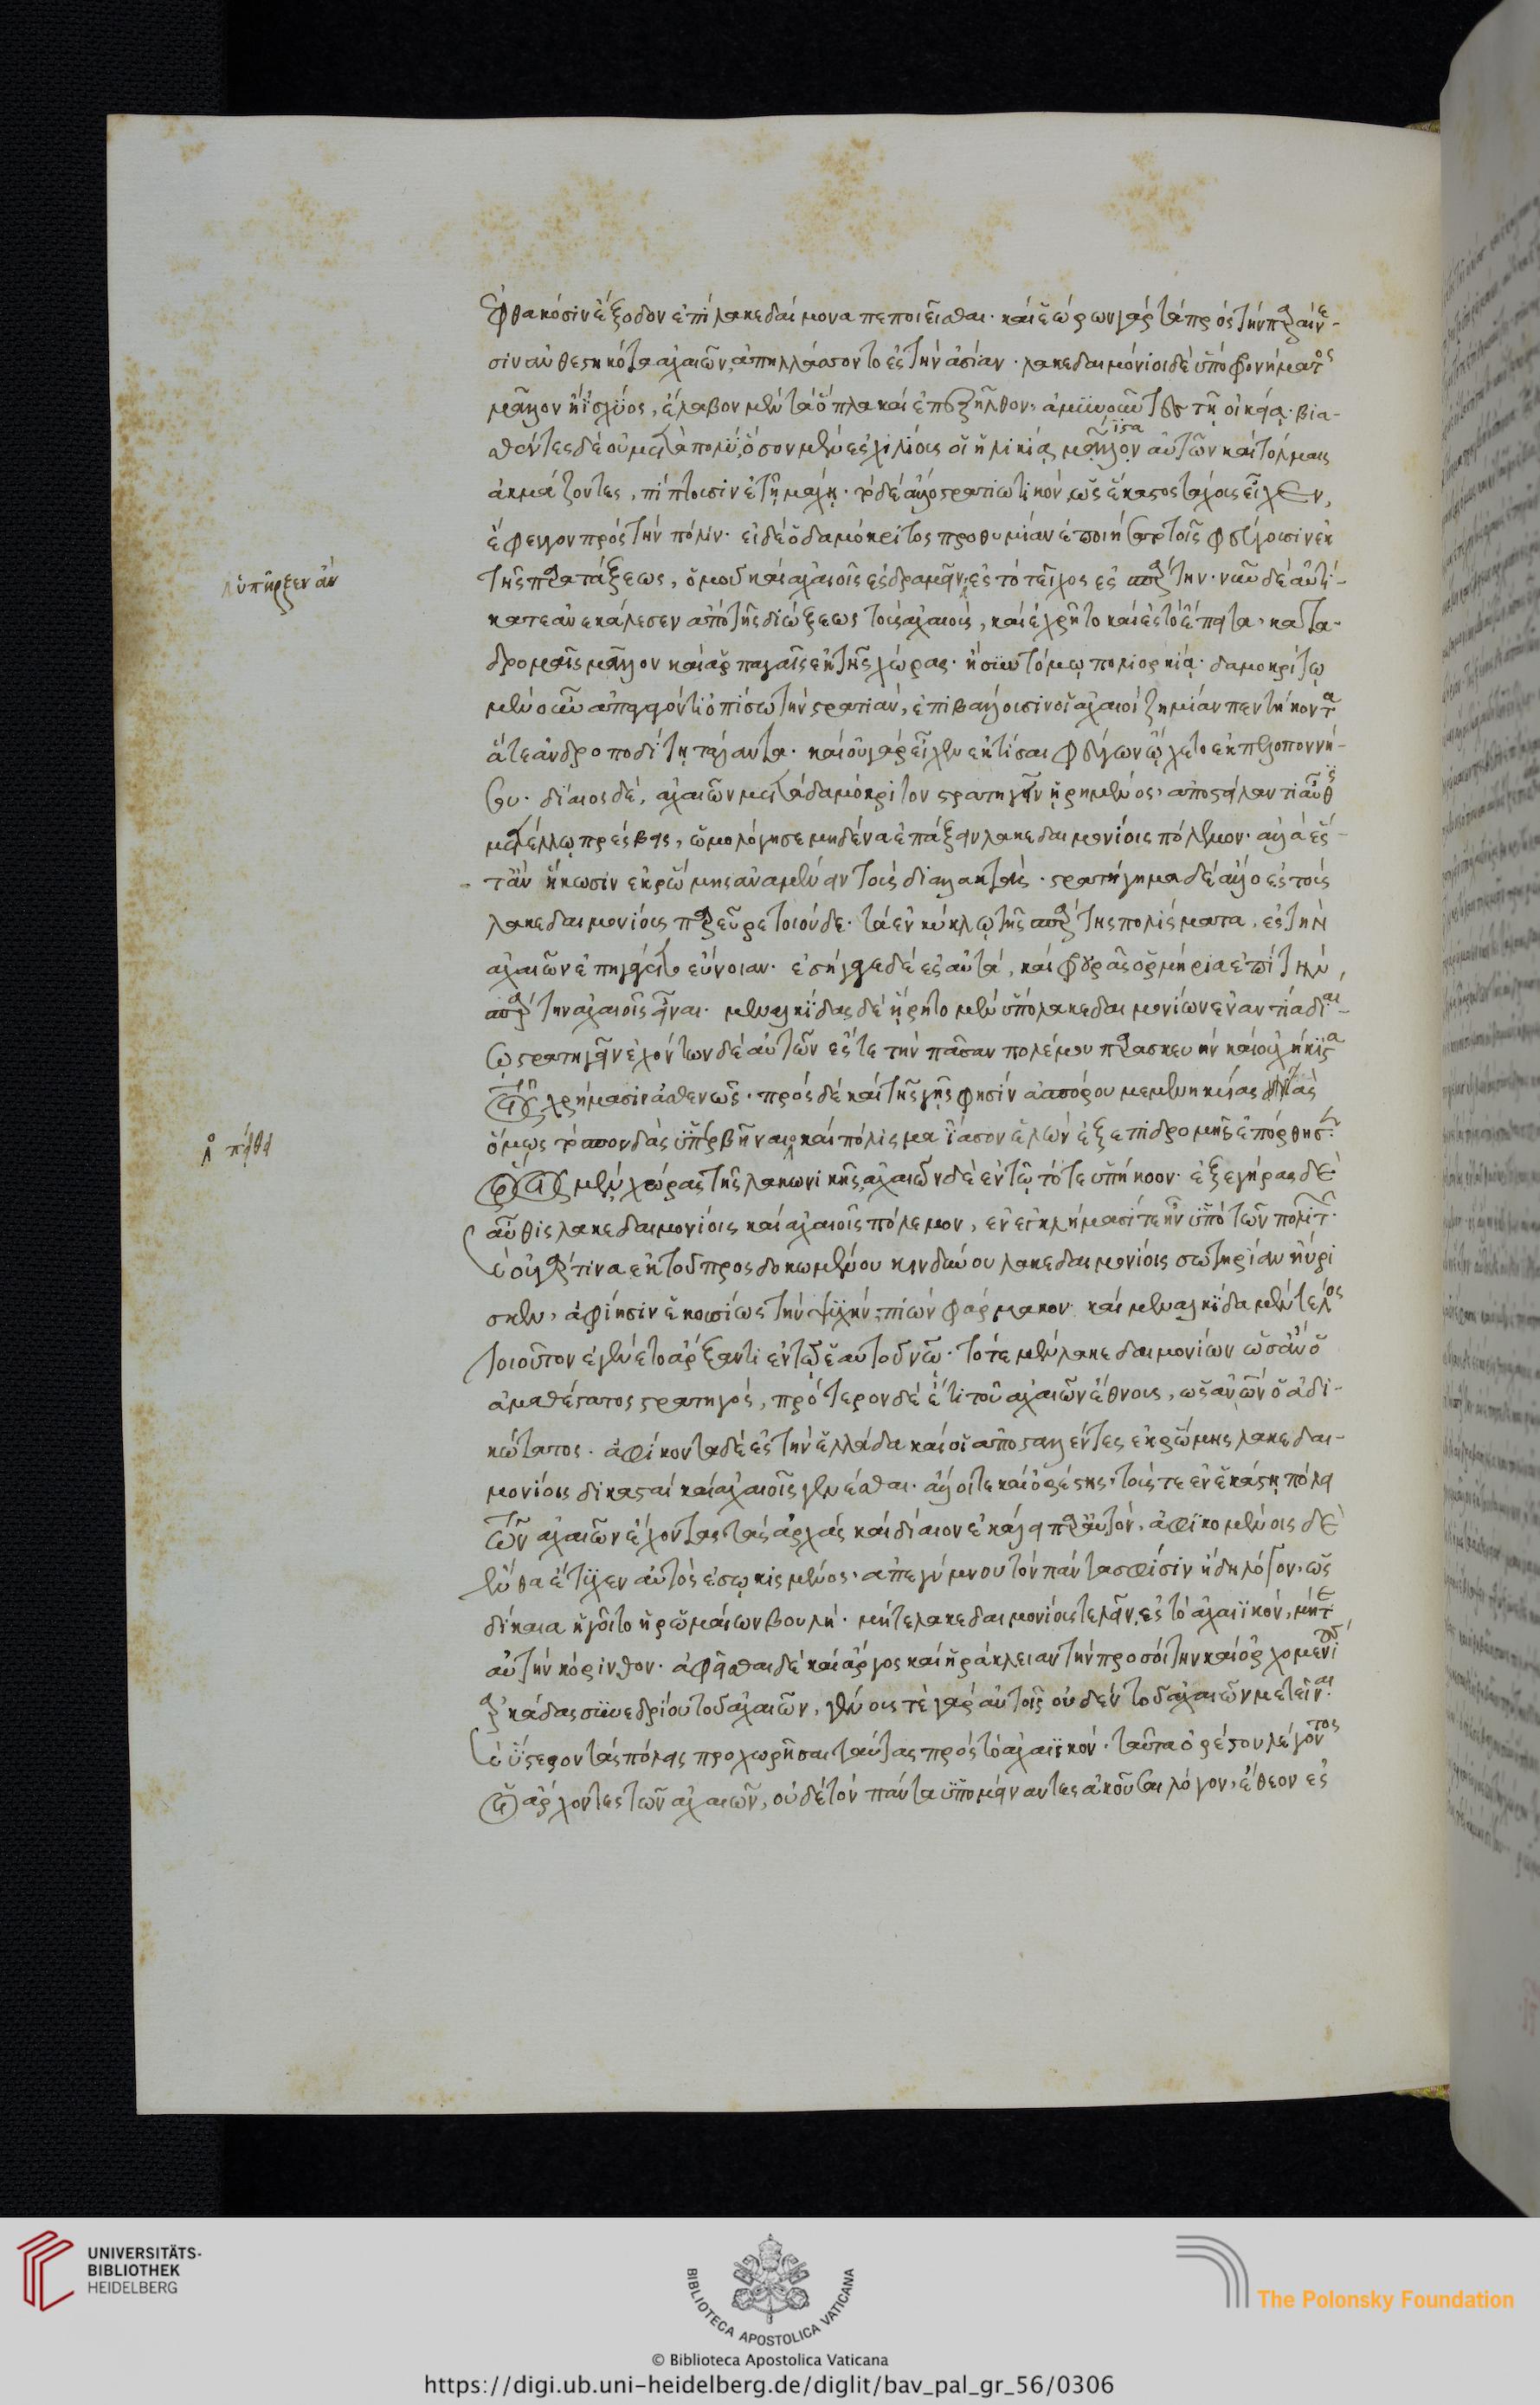 ἐφθακόσιν ἔξοδον ἐπὶ λακεδαίμονα πεποιεῖσθαι· καὶ ἑώρων γὰρ τὰ πρὸς τὴν παραίνε-
σιν ἀνθεστηκότα ἀχαιῶν, ἀπηλλάσσοντο ἐς τὴν ἀσίαν· λακεδαιμόνιοι δὲ ὑπὸ φρονήματος
μᾶλλον ἢ ἰσχύος, ἔλαβον μὲν τὰ ὅπλα καὶ ἐπεξῆλθον, ἀμυνοῦντες τῇ οἰκείᾳ· βια-
σθέντες δὲ οὐ μετὰ πολὺ, ὅσον μὲν ἐς χιλίους οἳ ἡλικίᾳ μᾶλλον ιστα αὐτῶν καὶ τόλμαις
ἀκμάζοντες, πίπτουσιν ἐν τῇ μάχῃ· τὸ δὲ ἄλλο στρατιωτικόν, ὡς ἕκαστος τάχους εἶχεν,
ἔφευγον πρὸς τὴν πόλιν· εἰ δὲ ὁ δαμόκριτος προθυμίαν ἐποιήσατο τοῖς φεύγουσιν ἐκ
τῆς παρατάξεως, ὁμοῦ καὶ ἀχαιοῖς ἐσδραμεῖν, ἐς τὸ τεῖχος ἐς σπάρτην· νῦν δὲ αὐτί-
λ ὑπῆρξεν ἄν
κα τε ἀνεκάλεσεν ἀπὸ τῆς διώξεως τοὺς ἀχαιοὺς, καὶ ἐχρῆτο καὶ ἐς τὸ ἔπειτα, κατα-
δρομαῖς μᾶλλον καὶ ἁρπαγαῖς ἐκ τῆς χώρας· ἢ συντόμῳ πολιορκίᾳ· δαμοκρίτῳ
μὲν οὖν ἀπαγαγόντι ὀπίσω τὴν στρατιάν, ἐπιβάλλουσιν οἱ ἀχαιοὶ ζημίαν πεντήκοντα
ἅτε ἀνδρὶ προδότῃ τάλαντα· καὶ οὐ γὰρ εἶχεν ἐκτίσαι φεύγων ᾤχετο ἐκ πελοποννή-
σου· δίαιος δὲ, ἀχαιῶν μετὰ δαμόκριτον στρατηγεῖν ᾑρημένος, ἀποστείλαντι αὖθις
μετέλλῳ πρέσβεις, ὡμολόγησε μηδένα ἐπάξειν λακεδαιμονίοις πόλεμον· ἀλλὰ ἔς-
τ᾽ ἂν ἥκωσιν ἐκ ῥώμης ἀναμένειν τοὺς διαλλακτάς· στρατήγημα δὲ ἄλλο ἐς τοὺς
λακεδαιμονίους παρεῦρε τοιόνδε· τὰ ἐν κύκλῳ τῆς σπάρτης πολίσματα, ἐς τὴν
ἀχαιῶν ἐπηγάγετο εὔνοιαν· ἐσήγαγε δὲ ἐς αὐτά, καὶ φρουρὰς ὁρμήρια ἐπὶ τὴν,
σπάρτην ἀχαιοῖς εἶναι· μεναλκίδας δὲ ᾕρητο μὲν ὑπὸ λακεδαιμονίων ἐναντία διαί-
ῳ στρατηγεῖν ἐχόντων δὲ αὐτῶν ἔς τε τὴν πᾶσαν πολέμου παρασκευὴν καὶ οὐχ ἥκιστα
τοῖς χρήμασιν ἀσθενῶς· πρὸς δὲ καὶ τῆς γῆς φησὶν ἀσπόρου μεμενηκυίας
ὅμως τὰ σπονδὰς ὑπερβῆναι, καὶ πόλισμα ἴασον ἑλὼν ἐξ ἐπιδρομῆς ἐπόρθησεν
λ ο πείθει
ὂν ἐν τοῖς μὲν χώρας τῆς λακωνικῆς, ἀχαιῶν δὲ ἐν τῷ τότε ὑπήκοον· ἐξεγείρας δὲ
αὖθις λακεδαιμονίοις καὶ ἀχαιοῖς πόλεμον, ἐν ἐγκλήμασί τε ἦν ὑπὸ τῶν πολιτῶν·
οὐ γάρ τινα ἐκ τοῦ προσδοκωμένου κινδύνου λακεδαιμονίοις σωτηρίαν ηὕρι
σκεν, ἀφίησιν ἑκουσίως τὴν ψυχήν, πιὼν φάρμακον· καὶ μεναλκίδα μὲν τέλος
τοιοῦτον ἐγένετο ἄρξαντι ἐν τῷ ἑαυτοῦ νῷ· τότε μὲν λακεδαιμονίων ὡς ἂν ὁ
ἀμαθέστατος στρατηγός, πρότερον δὲ ἔτι τοῦ ἀχαιῶν ἔθνους, ὡς ἂν ὢν ὁ ἀδι-
κώτατος· ἀφίκοντο δὲ ἐς τὴν ἑλλάδα καὶ οἱ ἀποσταλέντες ἐκ ῥώμης λακεδαι-
μονίοις δικασταὶ καὶ ἀχαιοῖς γενέσθαι· ἄλλοι τε καὶ ὀρέστης, τούς τε ἐν ἑκάστῃ πόλει
τῶν ἀχαιῶν ἔχοντας τὰς ἀρχὰς καὶ δίαιον ἐκάλει παρ᾽ αὐτόν, ἀφικομένοις δὲ
ἔνθα ἔτυχεν αὐτὸς ἐσῳκισμένος, ἀπεγύμνου τὸν πάντα σφίσιν ἤδη λόγον, ὡς
δίκαια ἡγοῖτο ἡ ῥωμαίων βουλή· μήτε λακεδαιμονίους τελεῖν, ἐς τὸ ἀχαιϊκόν, μήτε
αὐτὴν κόρινθον· ἀφεῖσθαι δὲ καὶ ἄργος καὶ ἡράκλειαν τὴν πρὸς οἴτην καὶ ὀρχομενίους
ἀρκάδας συνεδρίου τοῦ ἀχαιῶν, γένους τὲ γὰρ αὐτοῖς οὐδὲν τοῦ ἀχαιῶν μετεῖναι
ὕστερον τὰς πόλεις προχωρῆσαι ταύτας πρὸς τὸ ἀχαιϊκόν· ταῦτα ὀρέστου λέγοντος
οἱ ἄρχοντες τῶν ἀχαιῶν, οὐδὲ τὸν πάντα ὑπομείναντες ἀκοῦσαι λόγον, ἔθεον ἐς
UNIVERSITÄTS-
BIBLIOTHEK
HEIDELBERG
BIBLIOTECA APOSTOLICA VATICANA
The Polonsky Foundation
© Biblioteca Apostolica Vaticana
https://digi.ub.uni-heidelberg.de/diglit/bav_pal_gr_56/0306